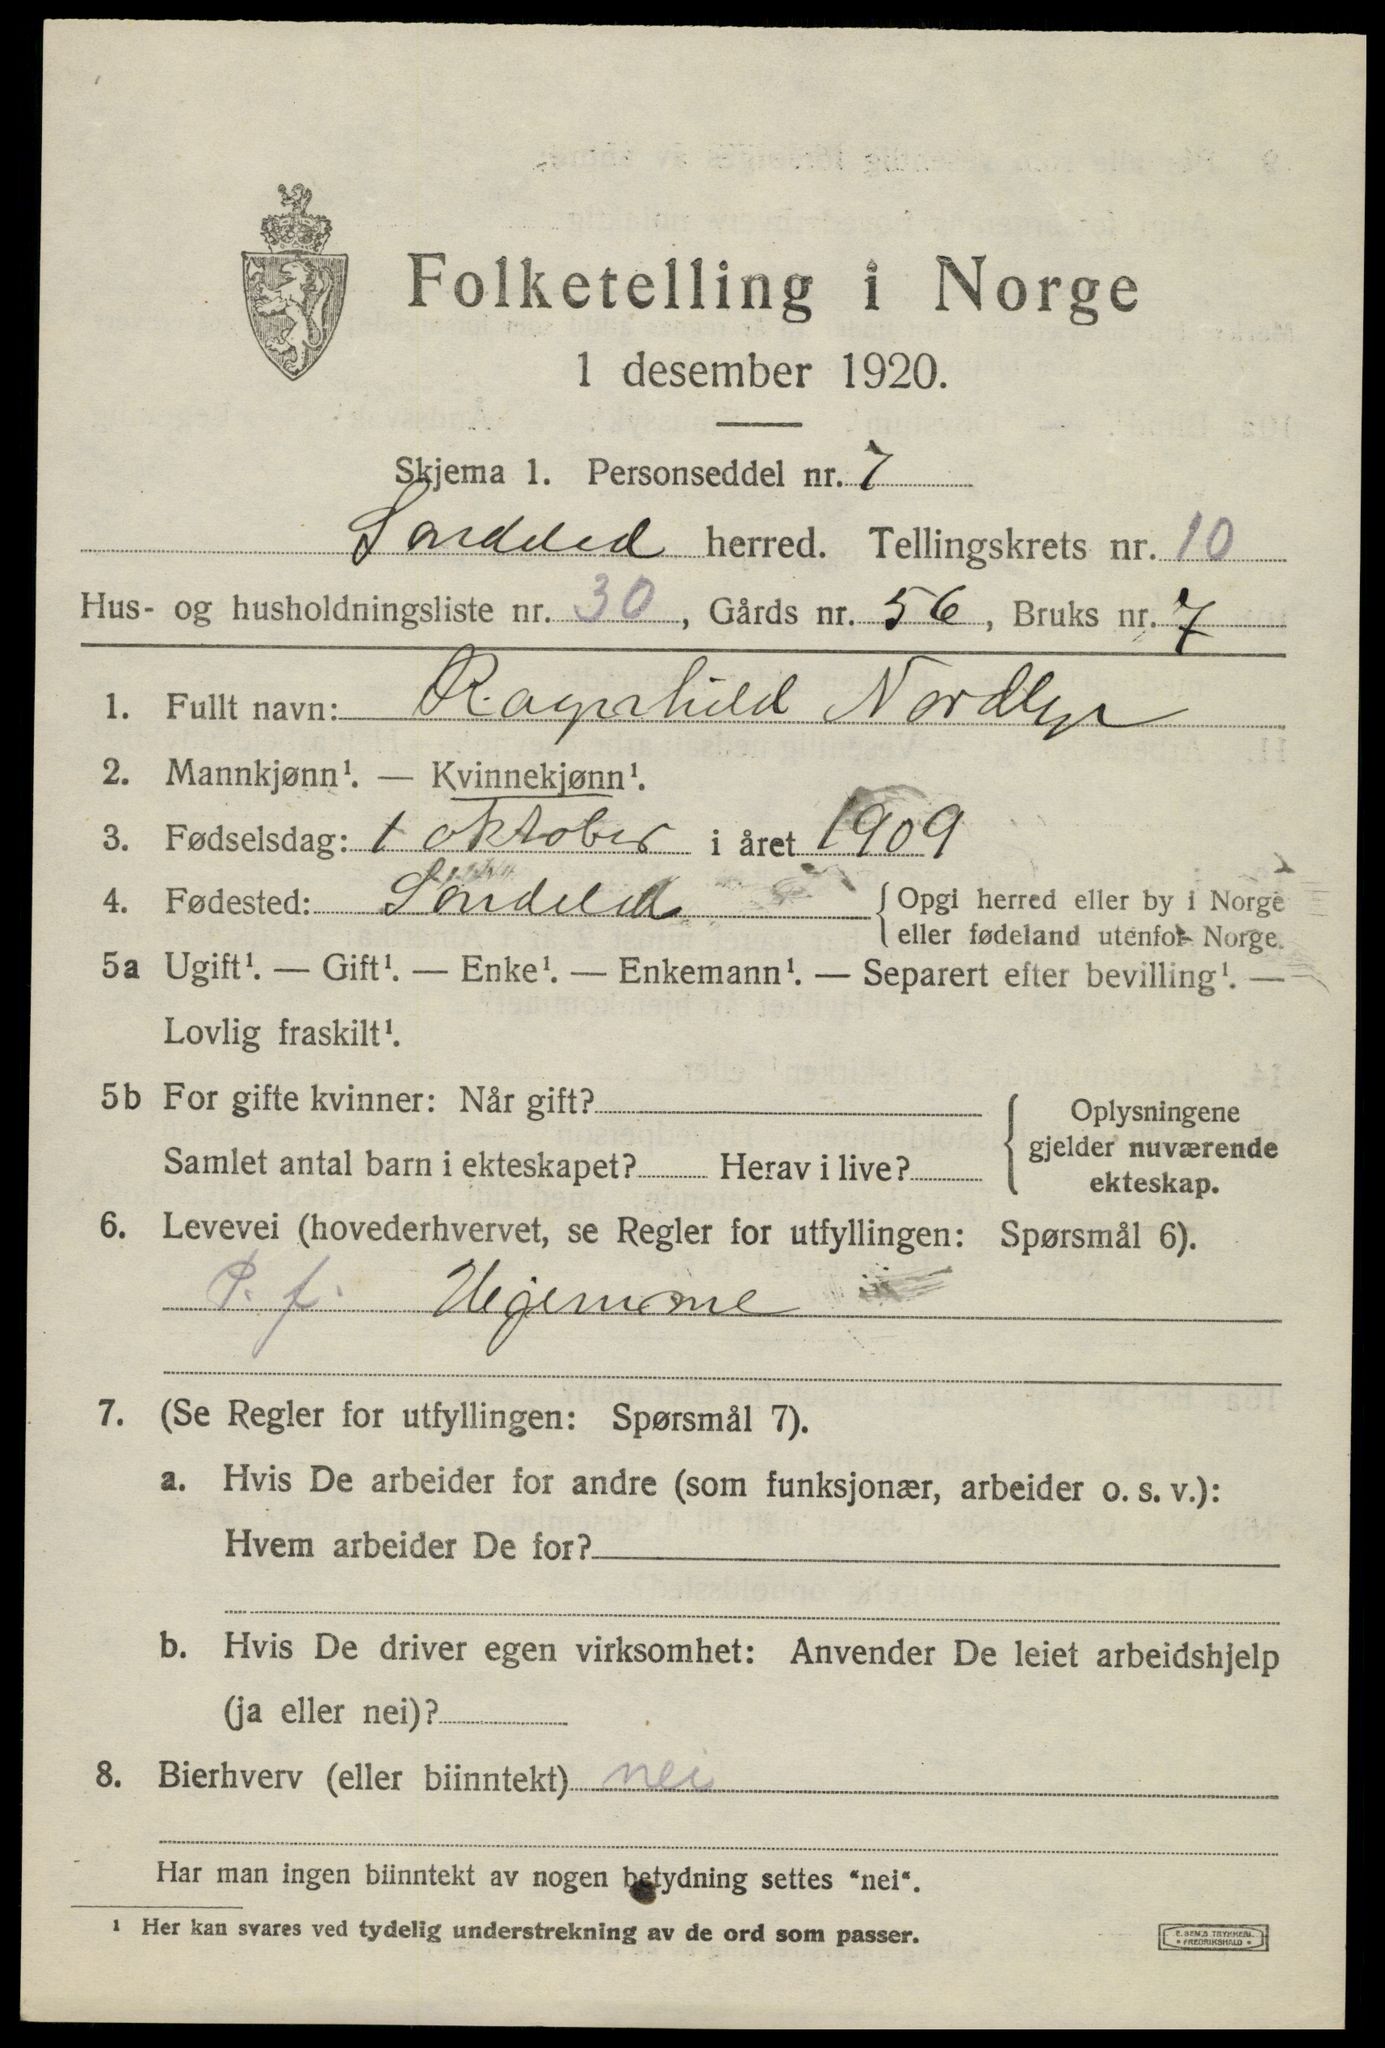 Folketelling i Norge
1 desember 1920.
Skjema 1. Personseddel nr. 7
Søndeled herred. Tellingskrets nr. 10
Hus- og husholdningsliste nr. 30, Gårds nr. 56, Bruks nr. 7
1. Fullt navn: Ragnhild Nordbye
2. Mannkjønn¹. — Kvinnekjønn¹.
3. Fødselsdag: 1 oktober i året 1909
4. Fødested: Søndeled {Opgi herred eller by i Norge
eller fødeland utenfor Norge.
5a Ugift¹. — Gift¹. — Enke¹. — Enkemann¹. — Separert efter bevilling¹. —
Lovlig fraskilt¹.
5b For gifte kvinner: Når gift?
Samlet antal barn i ekteskapet? Herav i live?
{Oplysningene
gjelder nuværende
ekteskap.
6. Levevei (hovederhvervet, se Regler for utfyllingen: Spørsmål 6).
P. f. Hjemme
7. (Se Regler for utfyllingen: Spørsmål 7).
a. Hvis De arbeider for andre (som funksjonær, arbeider o. s. v.):
Hvem arbeider De for?
b. Hvis De driver egen virksomhet: Anvender De leiet arbeidshjelp
(ja eller nei)?
8. Bierhverv (eller biinntekt) nei
Har man ingen biinntekt av nogen betydning settes "nei".
¹ Her kan svares ved tydelig understrekning av de ord som passer.
E. SEM'S TRYKKERI
FREDRIKSHALD